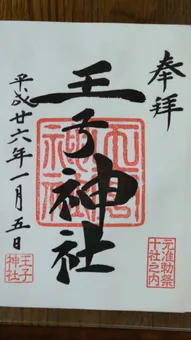 奉拝
元准勅祭
十社之内
王子神社
平成廿六年一月五日
王子
神社